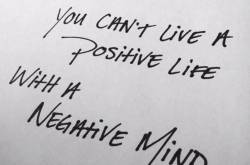 YOU CAN'T LIVE A
POSITIVE LIFE
WITH A
NEGATIVE MIND